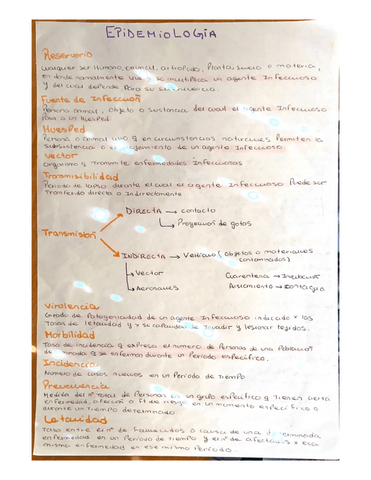 EPIDEMIOLOGÍA
Reservorio
Cualquier ser Humano, animal, artropodo, Planta, suelo o materia,
en donde normalmente vive y se multiplica un agente Infeccioso
y del cual depende para su supervivencia
Fuente de Infección
Persona animal, objeto o sustancia del cual el agente Infeccioso
Pasa a un Huesped
Huesped
Persona o animal vivo q en circunstancias naturales Permiten la
subsistencia o el alojamiento de un agente Infeccioso
Vector
organismo q Transmite enfermedades Infecciosas
Transmisibilidad
Periodo de lapso durante el cual el agente Infeccioso Puede ser
Tranferido directa o Indirectamente
DIRECTA → contacto
→ Proyeccion de gotas
Transmision
INDIRECTA → Vehiculo (objetos o materiales
contaminados)
→ Vector Cuarentena →
→ Aerosoles Aislamiento →
Virulencia
Grado de Patogenicidad de un agente Infeccioso indicado x las
Tasas de letalidad y x su capacidad de Invadir y lesionar tejidos.
Morbilidad
Tasa de incidencia q expresa el numero de Personas de una Poblacion
determinada q se enferma durante un Periodo especifico.
Incidencia
Numero de casos nuevos en un Periodo de Tiempo
Prevalencia
Medida del nº Total de Personas en un grupo especifico q Tienen cierta
enfermedad, afeccion o de riesgo en un momento especifico o
durante un Tiempo determinado
Letalidad
Tasa entre el nº de fallecidos a causa de una determinada
enfermedad en un Periodo de Tiempo y el nº de afectados x esa
misma enfermedad en ese mismo Periodo.